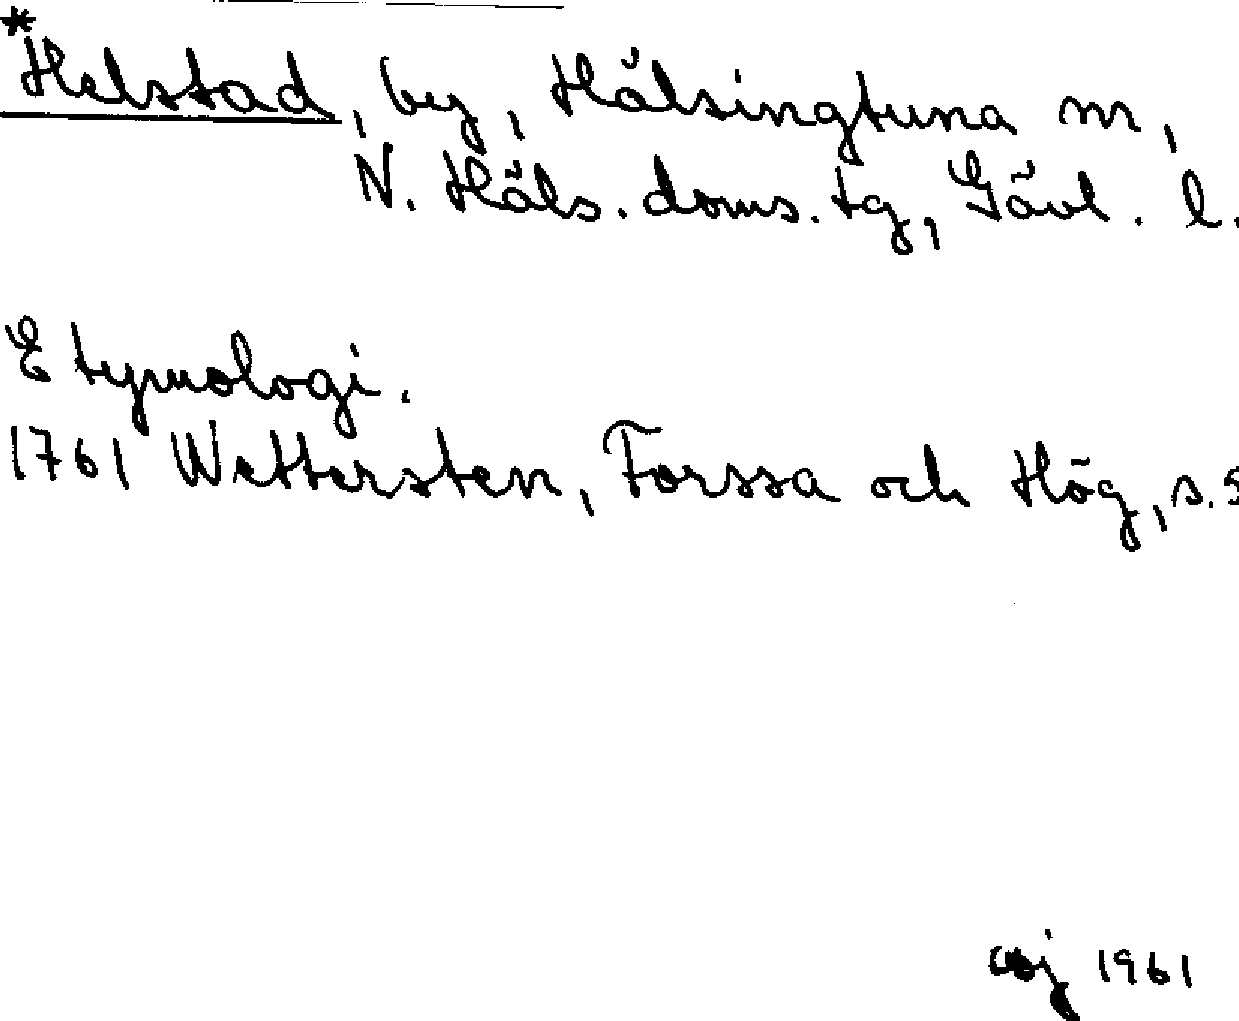 *Helstad, by, Hälsingtuna sn,
N. Häls. doms. tg, Gävl. l.
Etymologi.
1761 Wettersten, Forssa och Hög, s. 5
1961